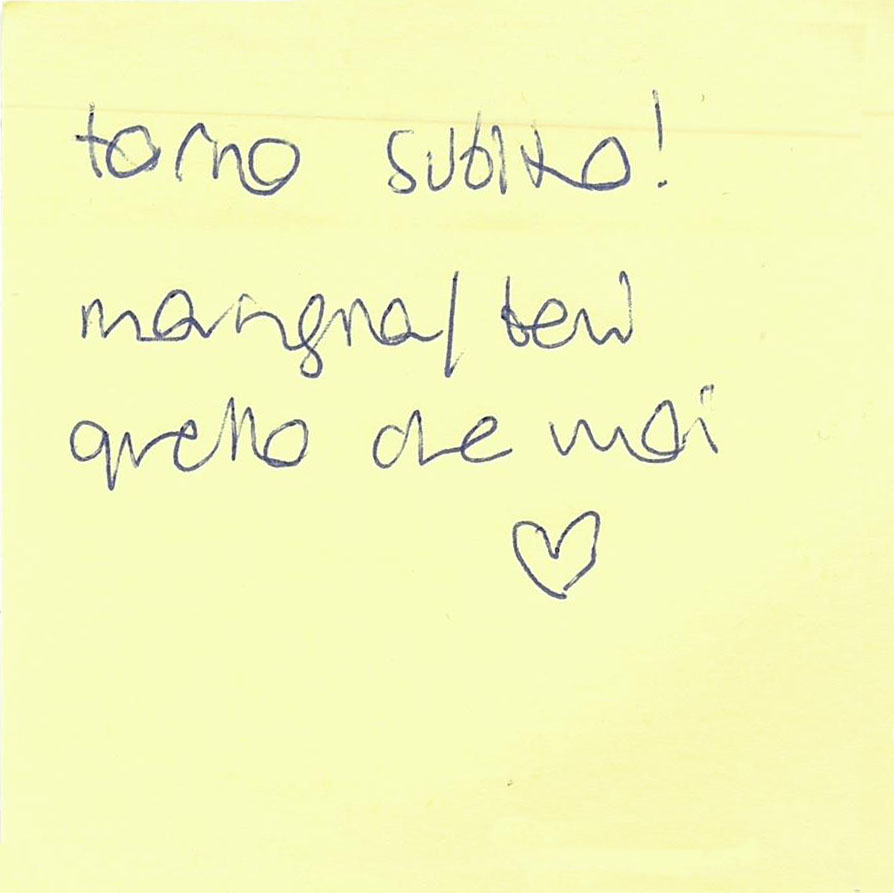 torno subito!
mangia/ bevi
quello che vuoi
♡